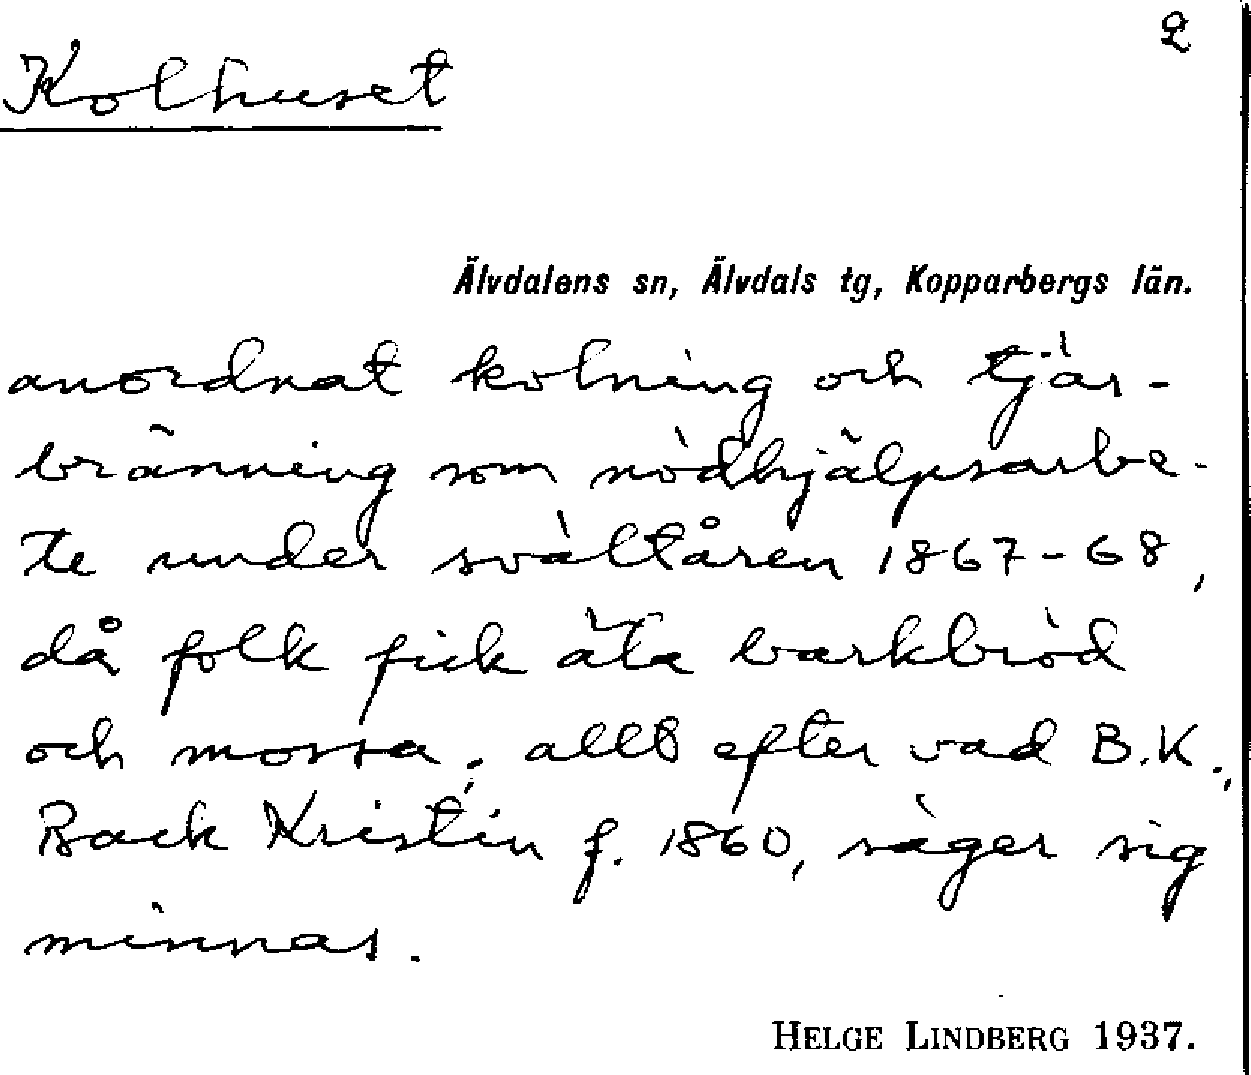 2
Kolhuset
Älvdalens sn, Älvdals tg, Kopparbergs län.
anordnat kolning och tjär-
bränning som nödhjälpsarbe-
te under svältåren 1867-68,
då folk fick äta barkbröd
och mossa; allt efter vad B.K.,
Back Kristin f. 1860, säger sig
minnas.
HELGE LINDBERG 1937.